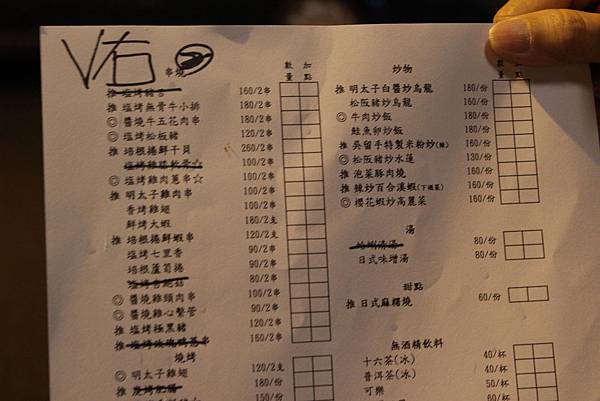 V右
串燒 數量 加點
推 塩烤豬舌 160/2串
推 塩烤無骨牛小排 180/2串
◎ 醬燒牛五花肉串 180/2串
◎ 塩烤松板豬 120/2串
推 培根捲鮮干貝 260/2串
塩烤雞腿軟骨☆ 100/2串
◎ 塩烤雞肉蔥串☆ 100/2串
推 明太子雞肉串 100/2串
香烤雞翅 100/2串
鮮烤大蝦 180/2支
推 培根捲鮮蝦串 120/2支
塩烤七里香 90/2串
培根蘆筍捲 90/2串
塩烤杏鮑菇 80/2串
◎ 醬燒雞頸肉串 100/2串
◎ 醬燒雞心繫管 90/2串
推 塩烤極黑豬 120/2串
推 塩烤玫瑰鴨蔥串 160/2串
燒烤
◎ 明太子雞翅 120/2支
推 炭烤肥腸 180/份
150/份
炒物 數量 加點
推 明太子白醬炒烏龍 180/份
松阪豬炒烏龍 160/份
◎ 牛肉炒飯 180/份
鮭魚卵炒飯 180/份
推 吳留手特製米粉炒(辣) 160/份
◎ 松阪豬炒水蓮 130/份
推 泡菜豚肉燒 160/份
推 辣炒百合溪蝦(下酒菜) 160/份
◎ 櫻花蝦炒高麗菜 160/份
湯
蛤蜊清湯 80/份
日式味增湯 80/份
甜點
推 日式麻糬燒 60/份
無酒精飲料
十六茶(冰) 40/杯
普洱茶(冰) 40/杯
可樂 50/杯
60/杯